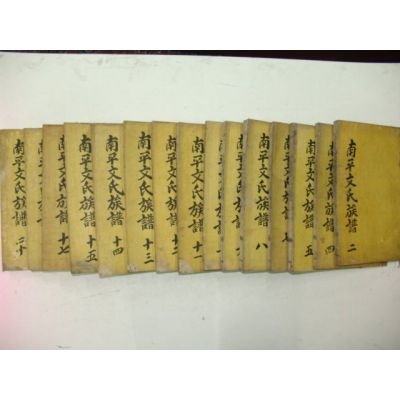 南平文氏族譜 二
南平文氏族譜 四
南平文氏族譜 五
南平文氏族譜
南平文氏族譜 八
南平文氏族譜 十一
南平文氏族譜 十二
南平文氏族譜 十三
南平文氏族譜 十四
南平文氏族譜 十五
南平文氏族譜 十七
南平文氏族譜 二十